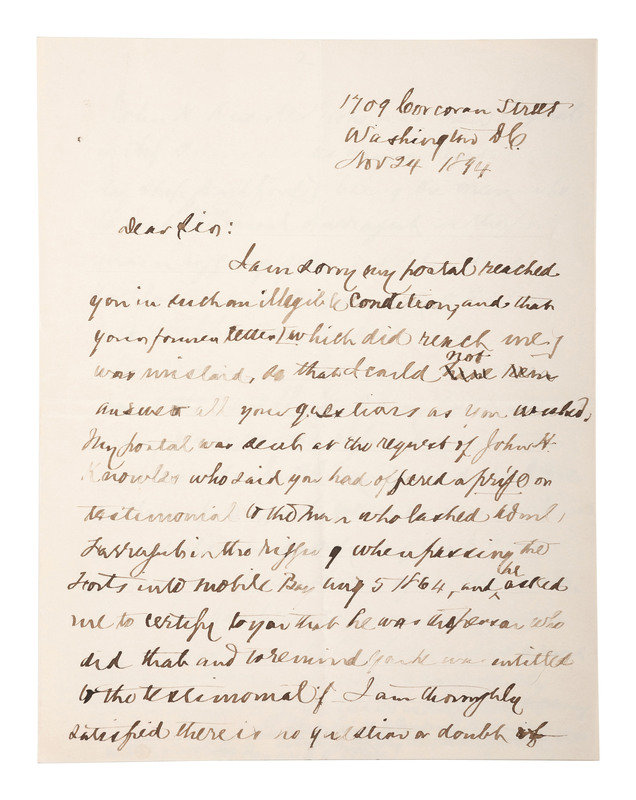 1709 Corcoran Street
Washington D.C.
Nov 24 1894
Dear Sir:
I am sorry my postal reached
you in such an illegible condition, and that
your former letter (which did reach me)
was mislaid, so that I could not
answer all your questions as you wished.
My postal was sent at the request of John H.
Knowles who said you had offered a prize or
testimonial to the man who lashed Adml.
Farragut in the rigging when passing the
Forts into Mobile Bay Aug 5 1864, and he asked
me to certify to you that he was the person who
did that and to remind you he was entitled
to the testimonial. I am thoroughly
satisfied there is no question or doubt of